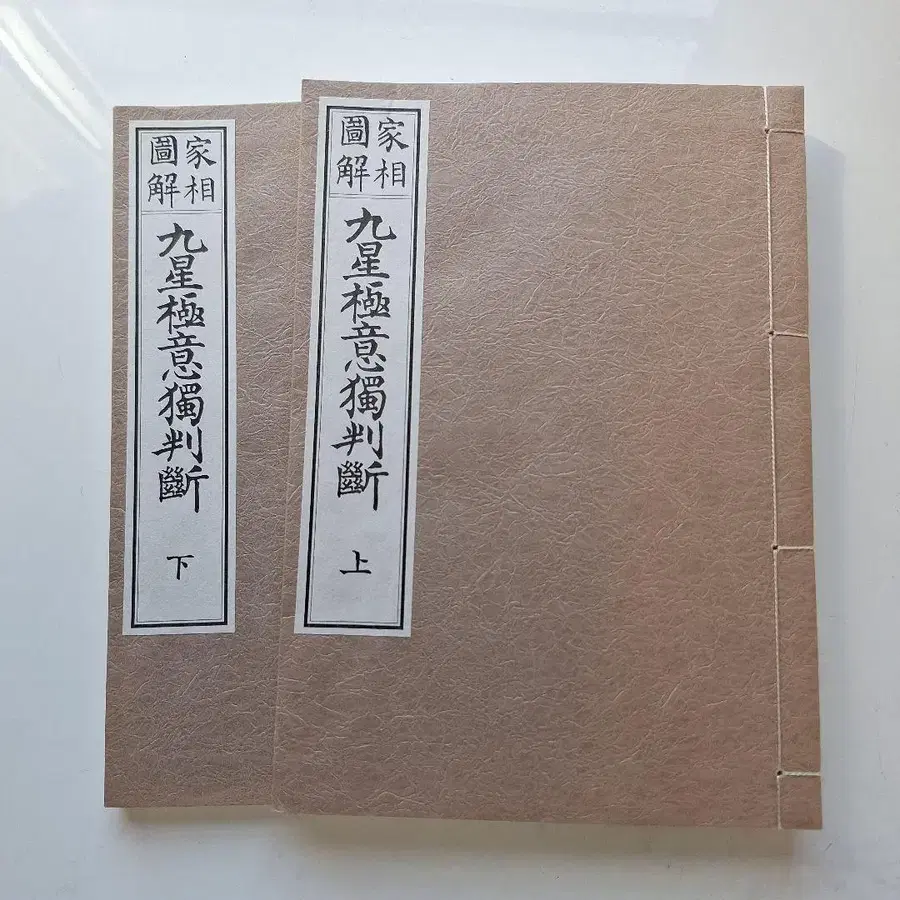 家相
圖解
九星極意獨判斷
上
家相
圖解
九星極意獨判斷
下